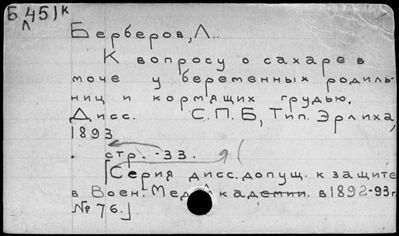 Б 451к
Л
Берберов, Л..
К вопросу о сахаре в
моче у беременных родиль-
ниц и кормящих грудью.
Дисс. С.П.Б, Тип. Эрлиха,
1893
стр. -33.
[Серия дисс. допущ. к защите
в Воен. Мед. Академии. в 1892-93 г.
№ 76.]